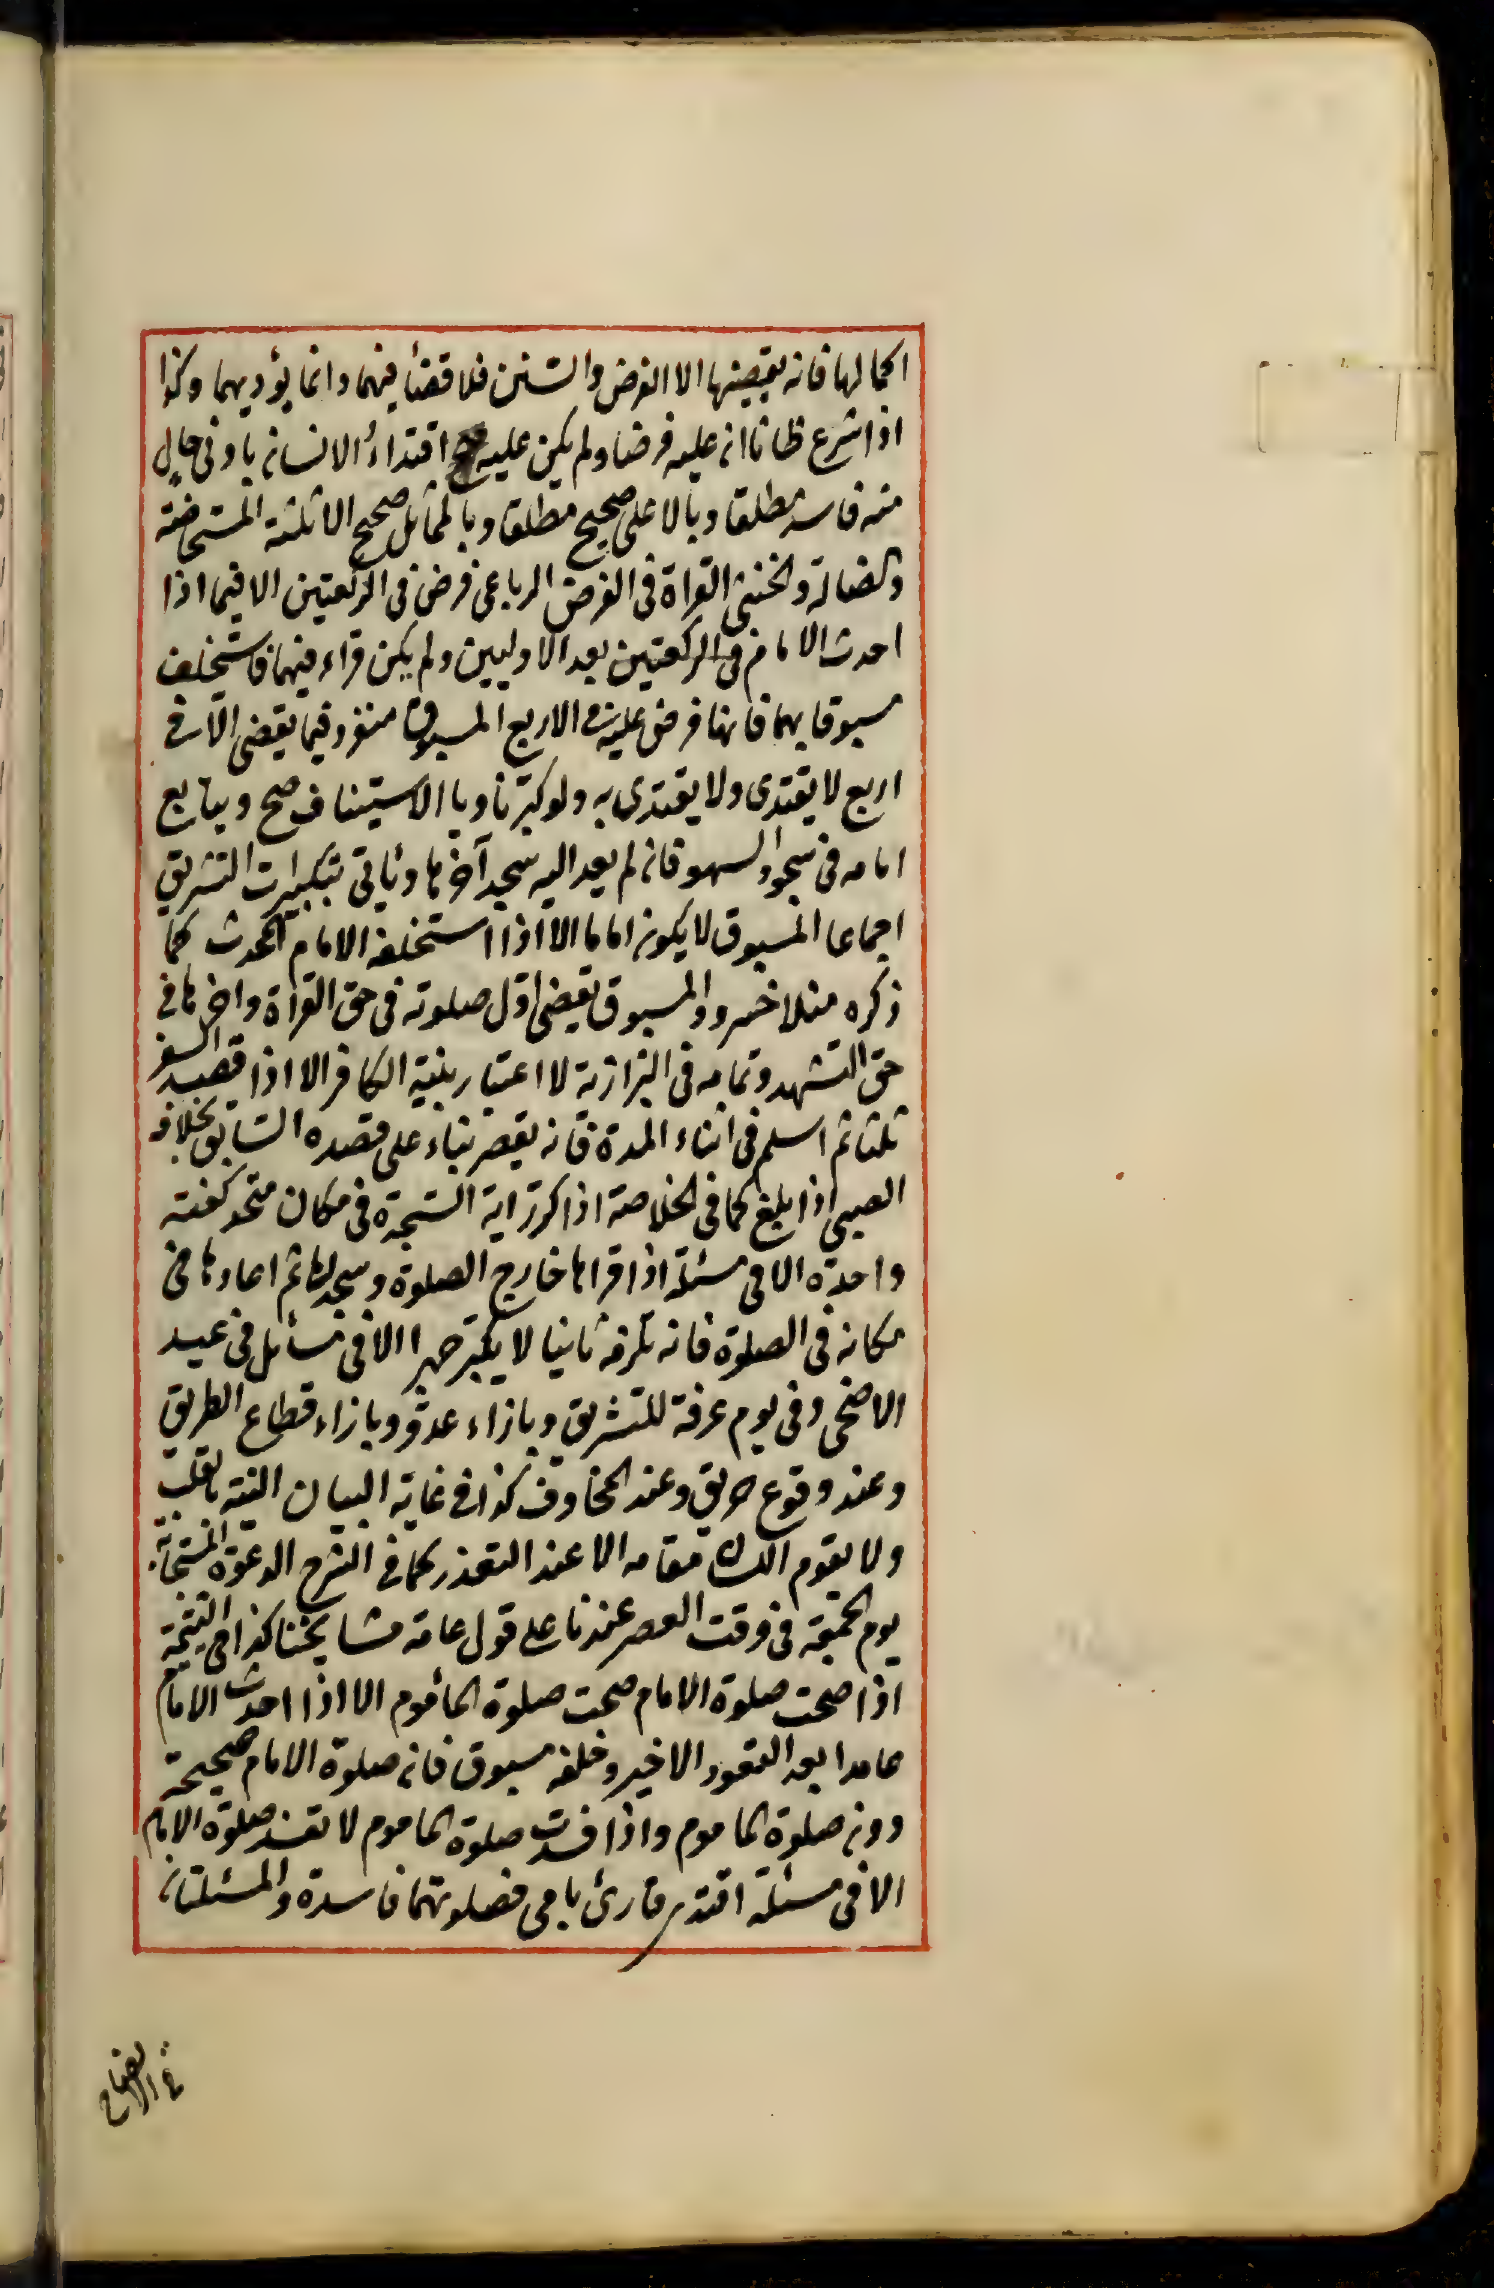 اكمالها فانه يقضيها الا الفرض والسنن فلا قضاء فيهما وانما يؤديهما وكذا
اذا شرع ظانا ان عليه فرضا ولم يكن عليه اقتداء الانسان بادنى حال
منه فاسد مطلقا وبالاعلى صحيح مطلقا وبالمماثل صحيح الا ثلثة المستحاضة
والضالة والخنثى القراة فى الفرض الرباعى فرض فى الركعتين الا فيما اذا
احدث الامام فى الركعتين بعد الاوليين ولم يكن قراء فيهما فاستخلف
مسبوقا بهما فانها فرض عليه فى الاربع المسبوق منفرد فيما يقضى الا فى
اربع لا يقتدى ولا يقتدى به ولو كبر ناويا الاستيناف صح ويتابع
امامه فى سجود السهو فان لم يعد اليه سجد آخرها ويأتى بتكبيرات التشريق
اجماعا المسبوق لا يكون اماما الا اذا استخلفه الامام المحدث كما
ذكره منلا خسرو والمسبوق يقضى اول صلوته فى حق القراة واخرها فى
حق التشهد وتمامه فى البزازية لا اعتبار بنية الكافر الا اذا قصد السفر
ثلثا ثم اسلم فى اثناء المدة فانه يقصر بناء على قصده السابق بخلاف
الصبى اذا بلغ كما فى الخلاصة اذا كرر اية السجدة فى مكان متحد كفته
واحدة الا فى مسئلة اذا قراها خارج الصلوة وسجد لها ثم اعادها فى
مكانه فى الصلوة فانه تلزمه ثانيا لا يكبر جهرا الا فى مسائل فى عيد
الاضحى وفى يوم عرفة للتشريق وبازاء عدو وبازاء قطاع الطريق
وعند وقوع حريق وعند المخاوف كذا فى غاية البيان النية بالقلب
ولا يقوم اللسان مقامه الا عند التعذر كما فى الشرح الدعوة المستجابة
يوم الجمعة فى وقت العصر عندنا على قول عامة مشايخنا كذا فى اليتيمة
اذا صحت صلوة الامام صحت صلوة المأموم الا اذا احدث الامام
عامدا بعد القعود الاخير وخلفه مسبوق فان صلوة الامام صحيحة
دون صلوة الماموم واذا فسدت صلوة الماموم لا تفسد صلوة الامام
الا فى مسئلة اقتدى قارئ بامى فصلوتهما فاسدة والمسئلتان